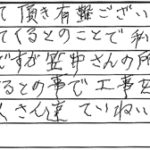 て頂き有難ござい
てくるとのことで私
ですが笠中さんの所
るとの事で工事を
くさん達ていねい